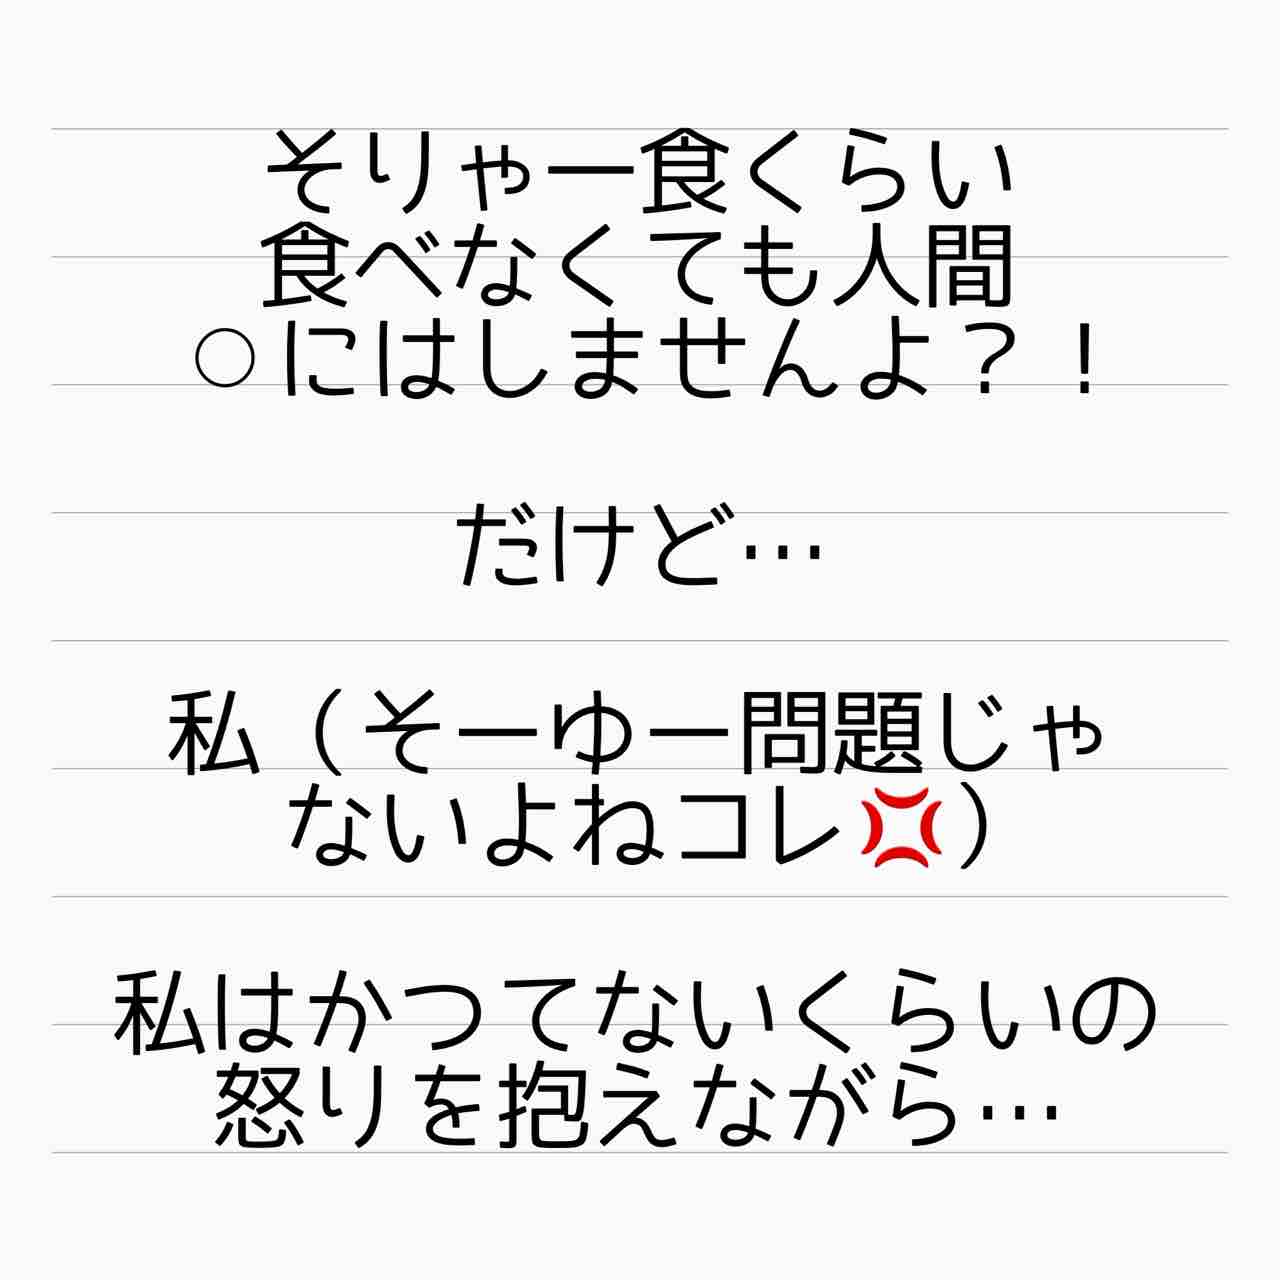 そりゃ一食くらい
食べなくても人間
○にはしませんよ？！
だけど…
私（そーゆー問題じゃ
ないよねコレ💢）
私はかつてないくらいの
怒りを抱えながら…